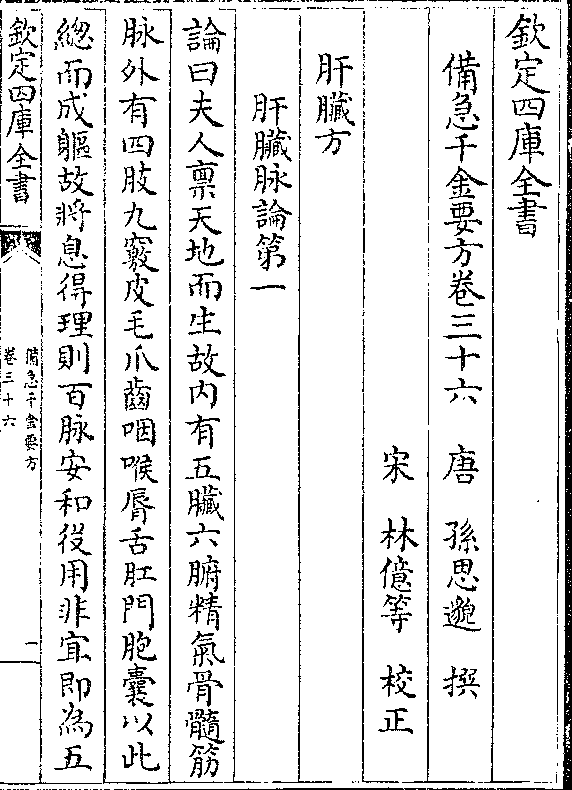 欽定四庫全書
備急千金要方卷三十六　唐　孫思邈　撰
宋　林億等　校正
肝臟方
肝臟脉論第一
論曰夫人禀天地而生故内有五臟六腑精氣骨髓筋
脉外有四肢九竅皮毛爪齒咽喉唇舌肛門胞囊以此
總而成軀故將息得理則百脉安和役用非宜即為五
欽定四庫全書
備急千金要方
卷三十六
一